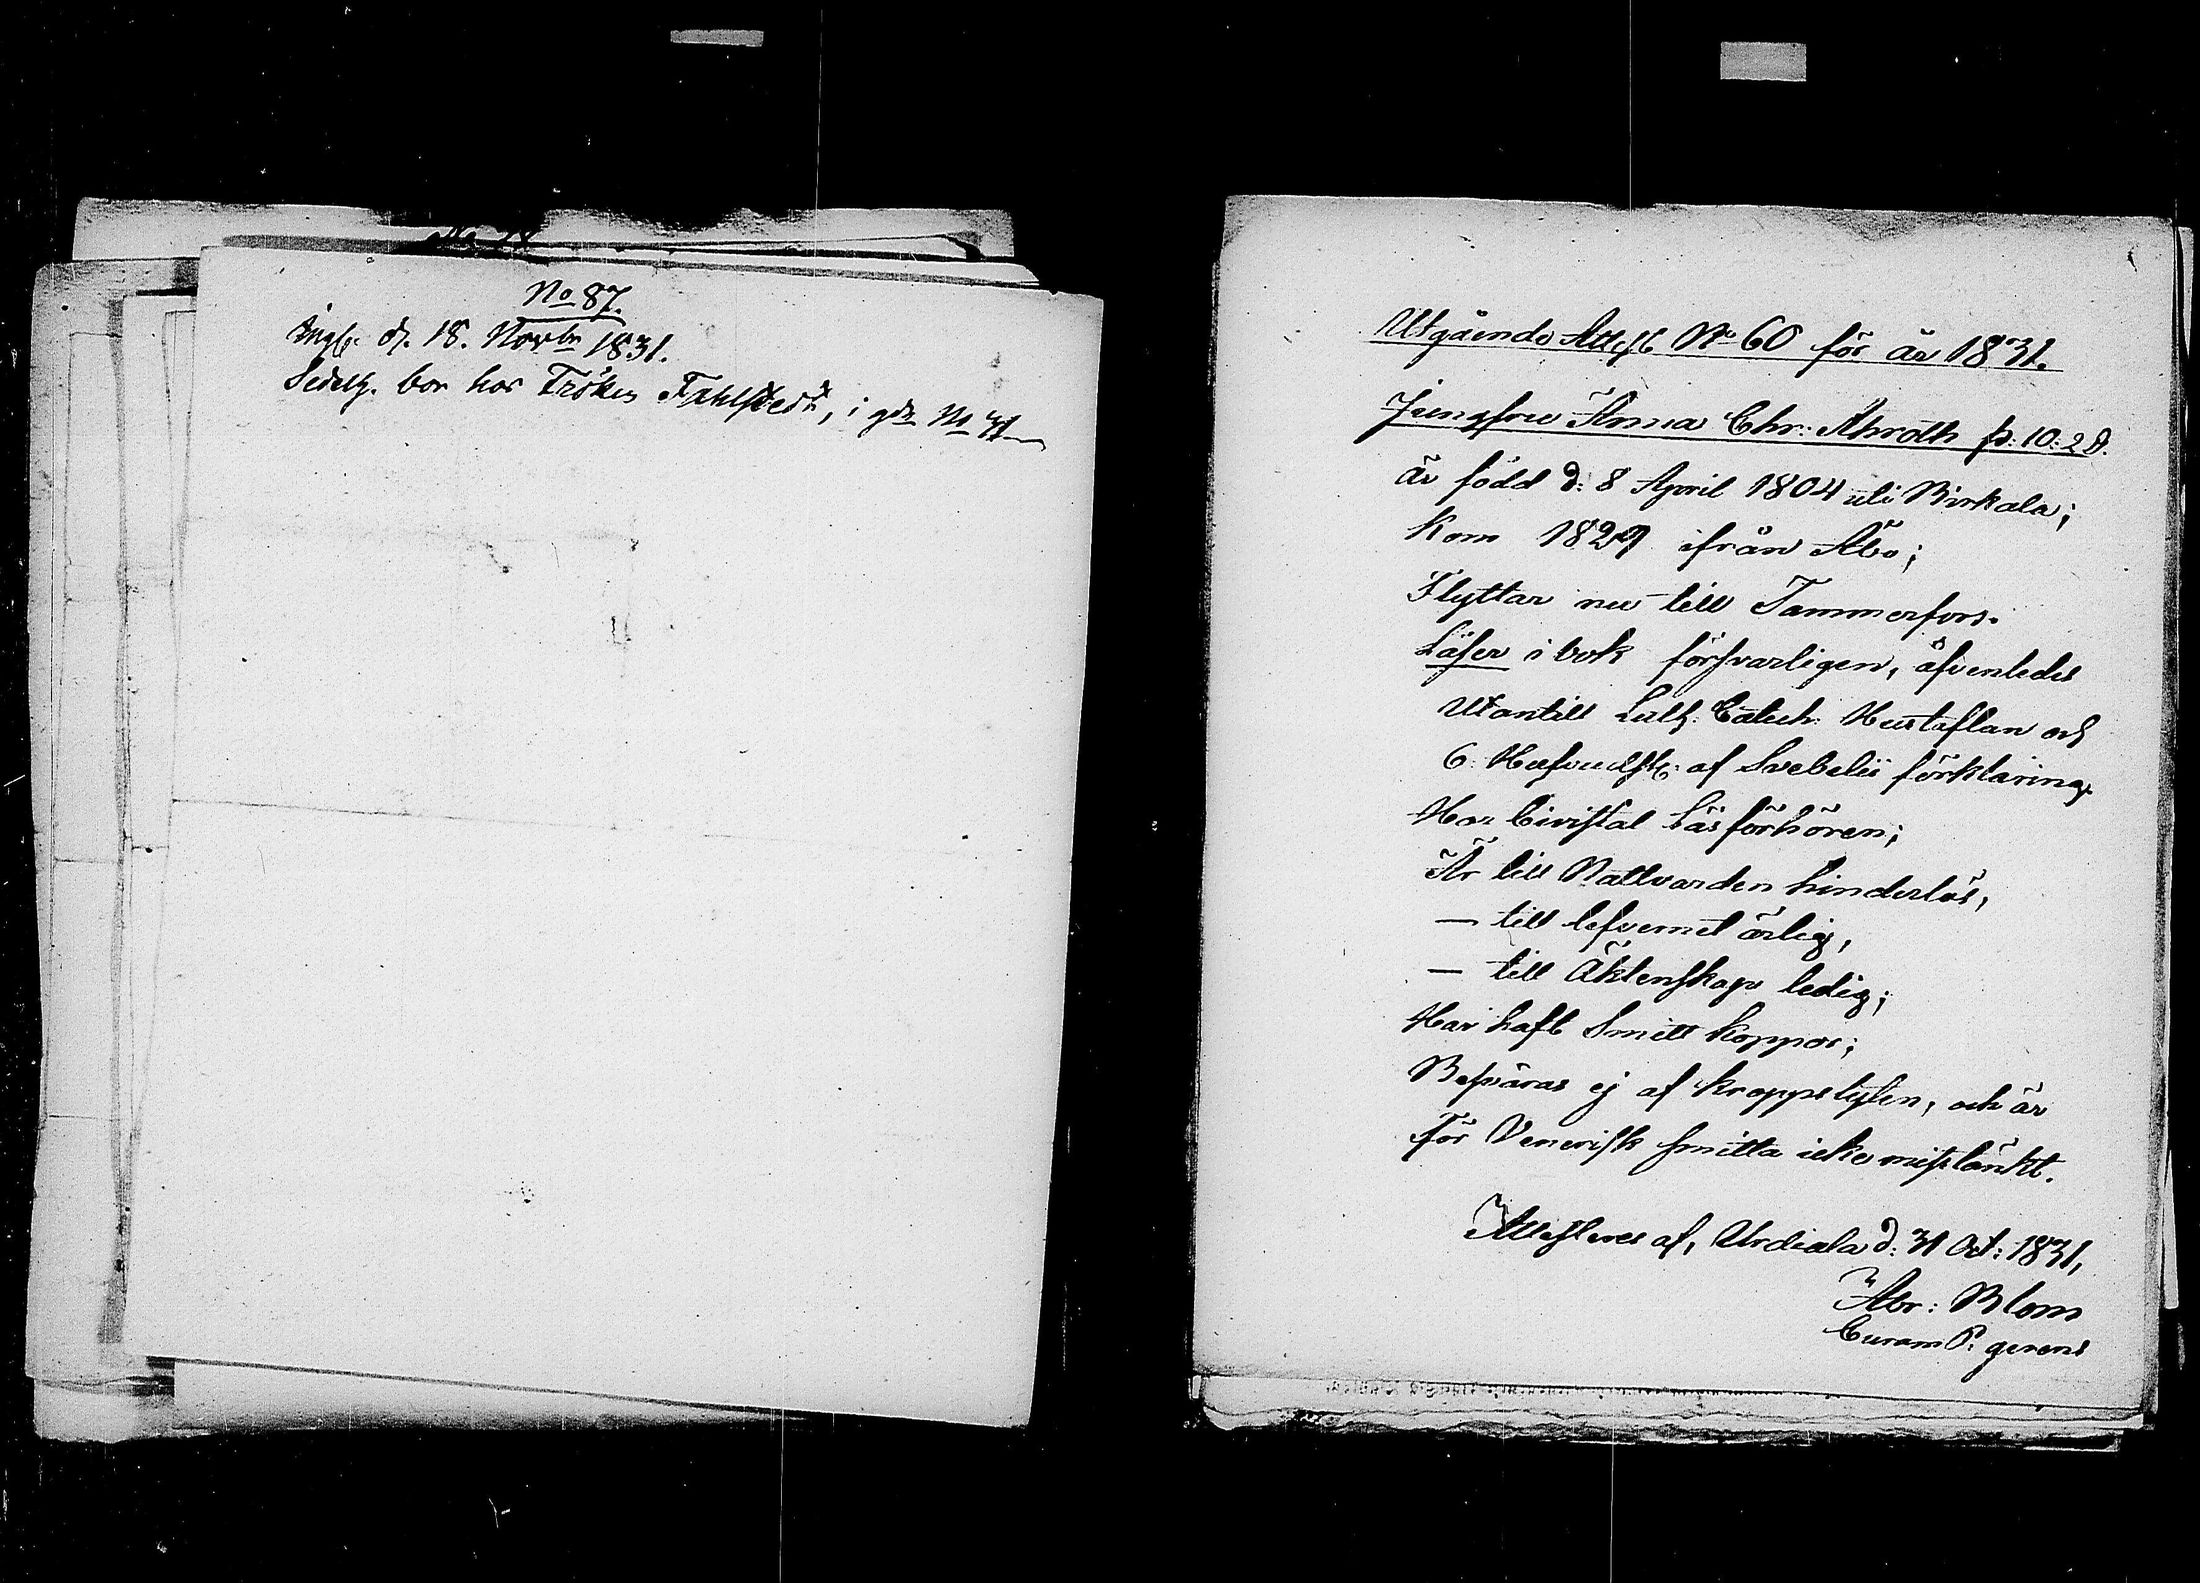 No 87.
Ingl. d. 18. Novbr 1831.
bor hos Fröken Fahlstedt, i gdn No 41
Utgående Attest No 60 för år 1831.
Jungfru Anna Chr: Ahroth p: 10: 2d.
Är född d: 8 April 1804 uti Birkala;
Kom 1829 ifrån Åbo;
Flyttar nu till Tammerfors.
Läser i bok försvarligen, äfvenledes
Utantill Luth: Catech: Hustaflan och
6 Hufvudst: af Svebelii förklaring.
Har bivistat Läsförhören;
Är till Nattvarden hinderlös,
— till lefvernet ärlig,
— till Äktenskap ledig;
Har haft Smitt koppor;
Besväras ej af kroppslyten, och är
För Venerisk smitta icke misstänkt.
Attesteres af, Urdiala d: 31 Oct: 1831,
Abr: Blom
Curam P: gerens